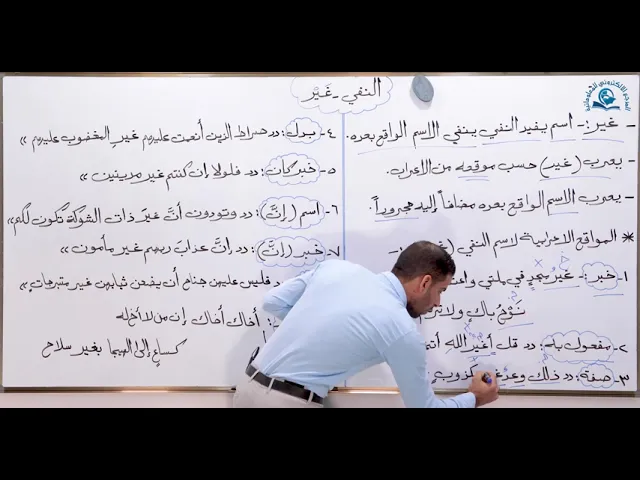 النفي - غَيْر
- غير :- اسم يفيد النفي ينفي الاسم الواقع بعده.
- يعرب (غير) حسب موقعه من الاعراب.
- يعرب الاسم الواقع بعده مضافاً إليه مجروراً.
* المواقع الاعرابية لاسم النفي
١- خبر :- غيرُ مجدٍ في ملتي
نَوْحُ باكٍ ولا
٢- مفعول به : (( قل أغير الله
٣- صفة : (( ذلك وعدٌ غير مكذوب
٤- بدل : (( صراط الذين أنعمت عليهم غيرِ المغضوب عليهم ))
٥- خبر كان : (( فلولا إن كنتم غير مدينين ))
٦- اسم (إنَّ) : (( وتودون أنَّ غيرَ ذات الشوكة تكون لكم ))
٧- خبر (إنَّ) : (( إنَّ عذابَ ربهم غير مأمون ))
(( فليس عليهن جناح أن يضعن ثيابهن غير متبرجات ))
أخاك أخاك إن من لا أخا له
كساعٍ إلى الهيجا بغير سلاح